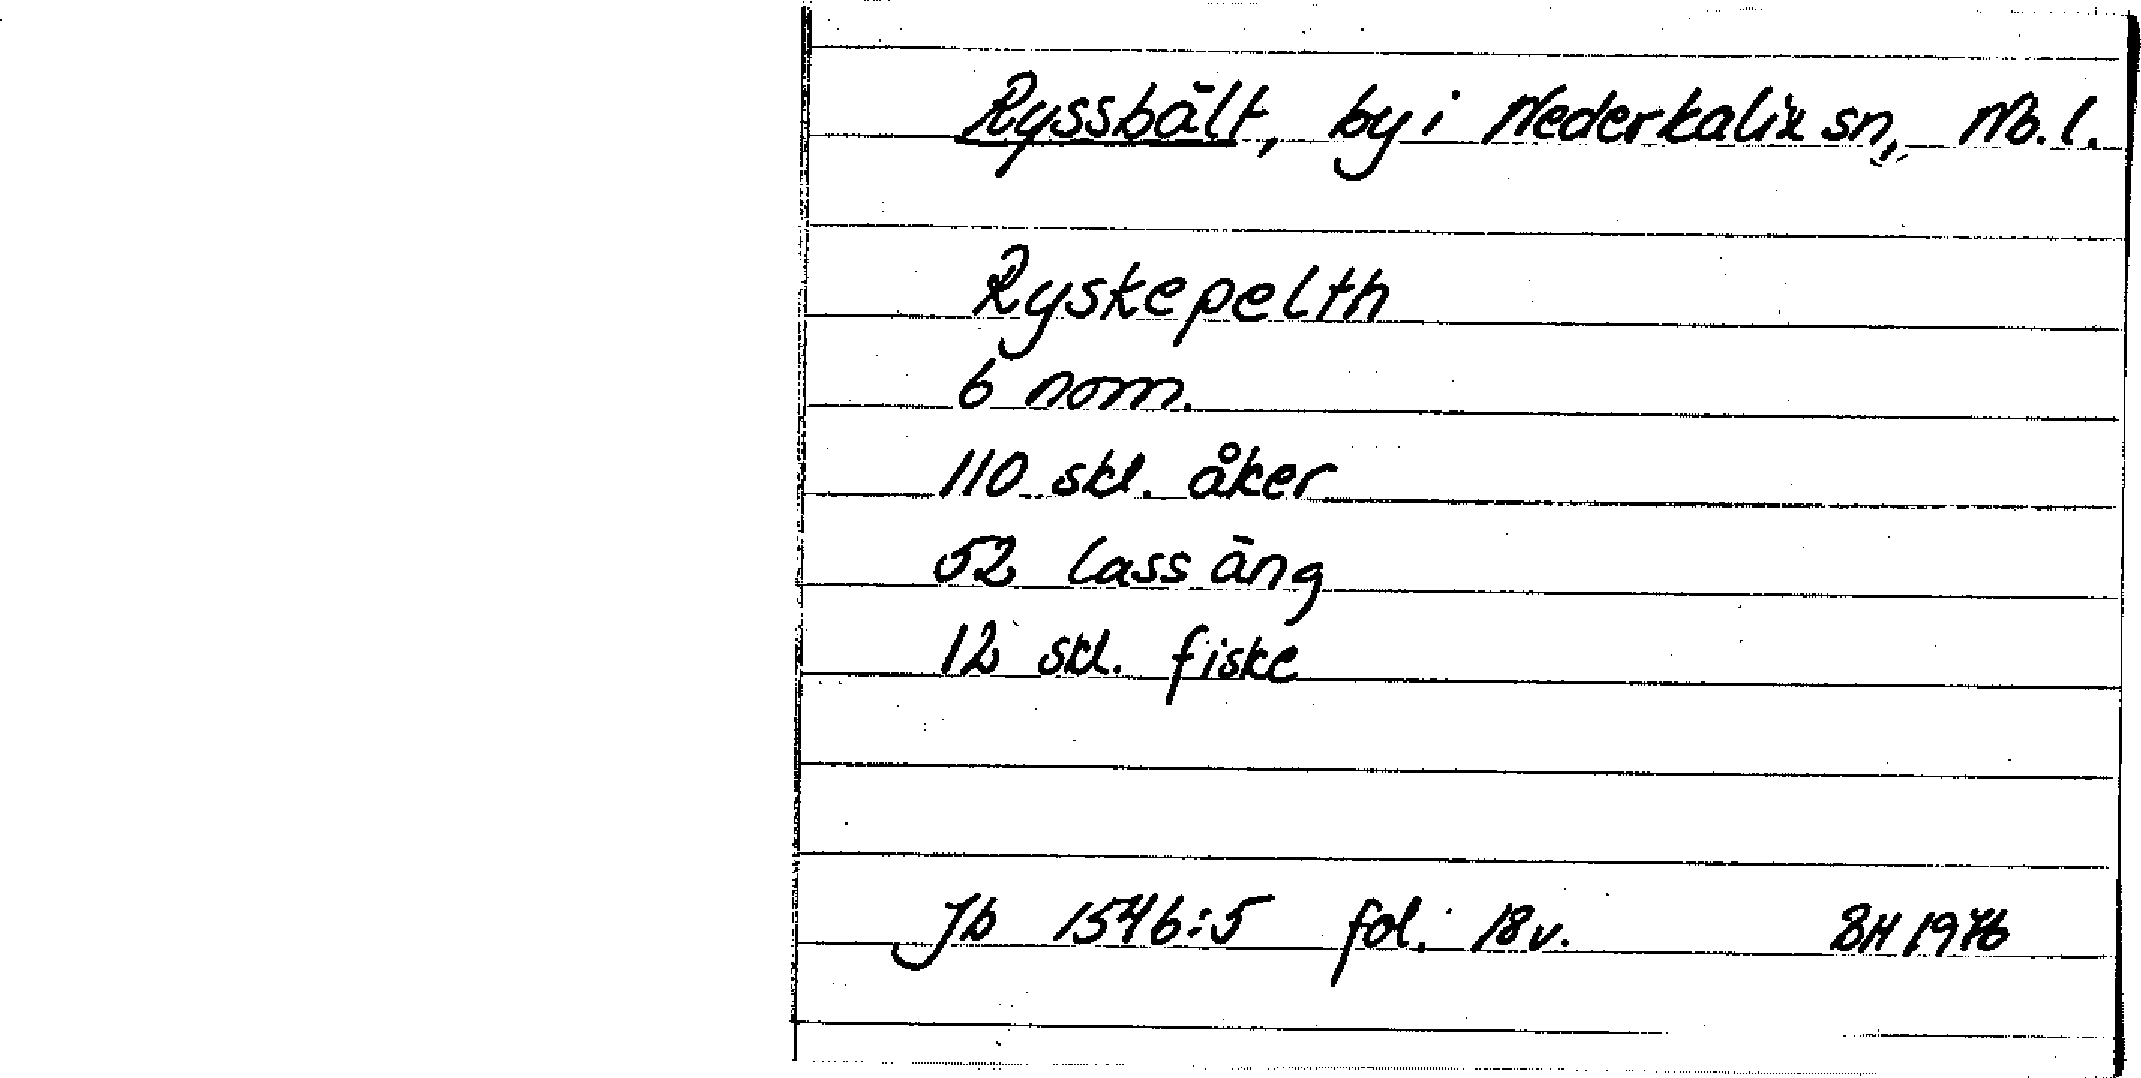 Ryssbält, by i Nederkalix sn, Nb. l.
Ryskepelth
6 nom.
110 skl. åker
52 lass äng
12 skl. fiske
Jb 1546:5 fol. 18 v. BH 1976